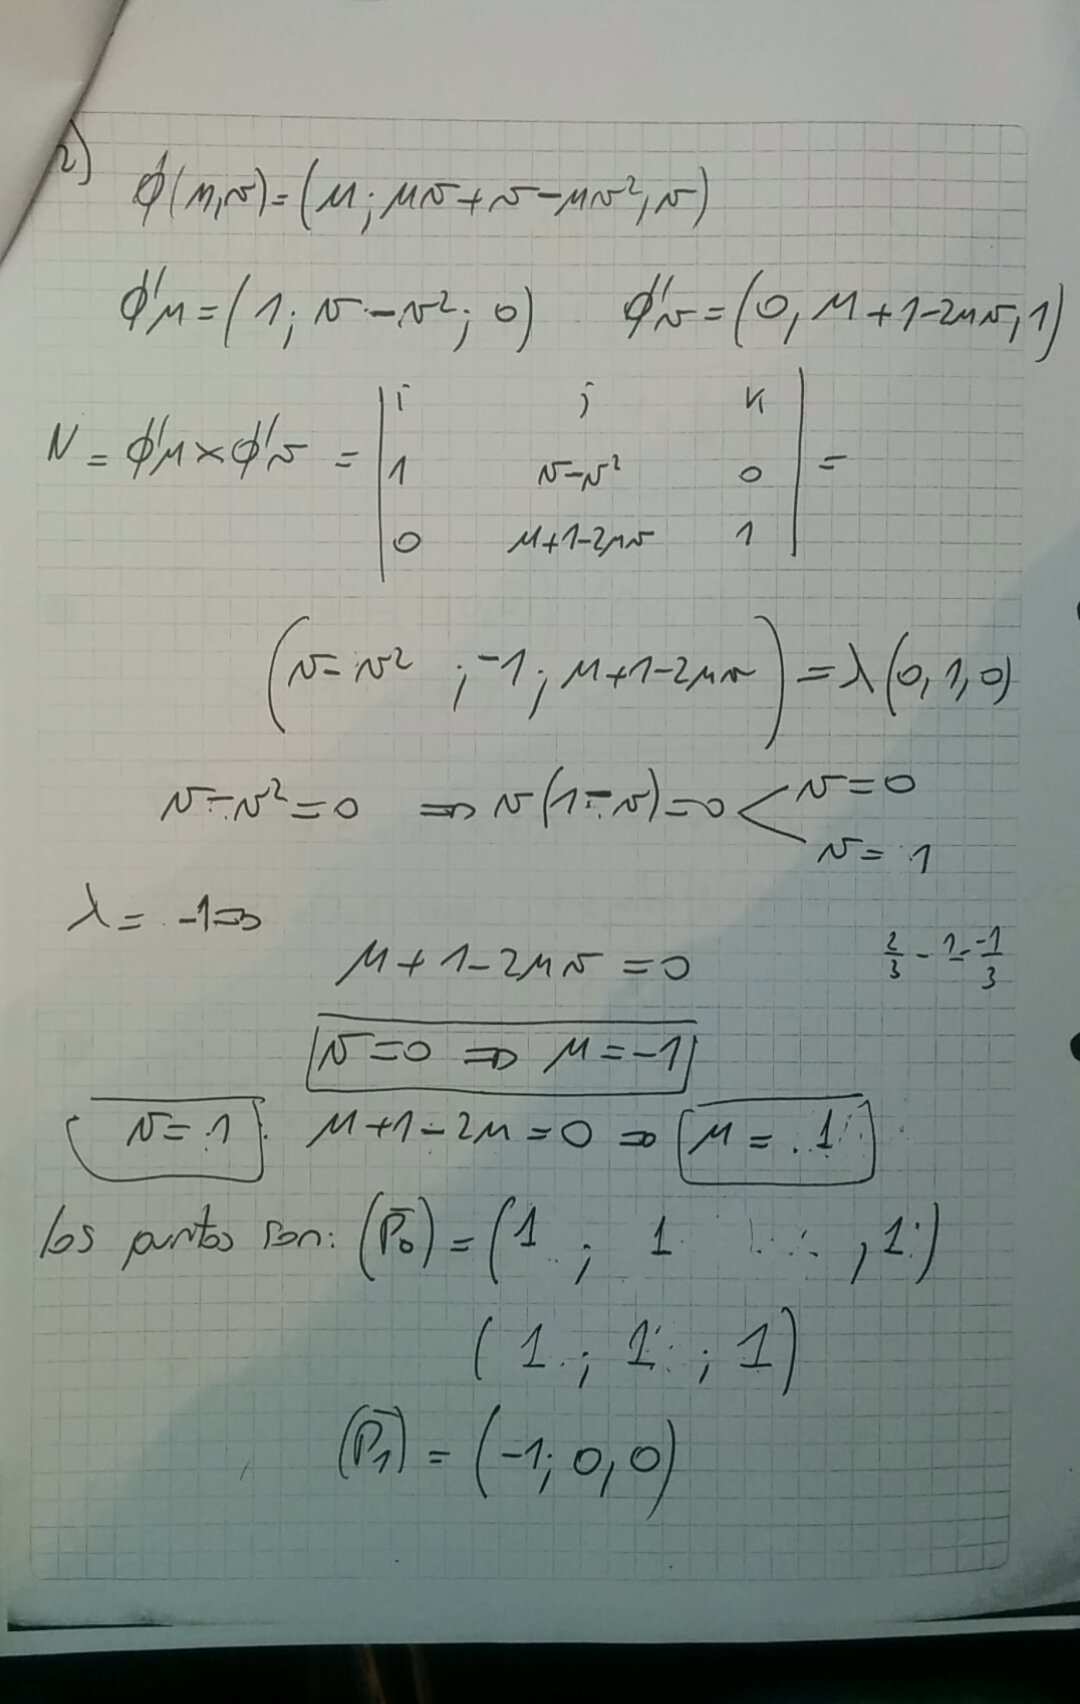 2)
ϕ(μ,v)=(μ; μv+v-μv², v)
ϕ'μ=(1; v-v²; 0) ϕ'v=(0, μ+1-2μv, 1)
N = ϕ'μ×ϕ'v = | i j k |
| 1 v-v² 0 | =
| 0 μ+1-2μv 1 |
(v-v² ; -1; μ+1-2μv) = λ(0,1,0)
v-v²=0 ⇒ v(1-v)=0 < v=0
v=1
λ = -1 ⇒
μ+1-2μv=0
2/3 - 1 = -1/3
v=0 ⇒ μ=-1
v=1 μ+1-2μ=0 ⇒ μ=1
los puntos son: (P̄₀) = (1 ; 1 , 1)
(1 ; 1 ; 1)
(P̄₁) = (-1; 0, 0)